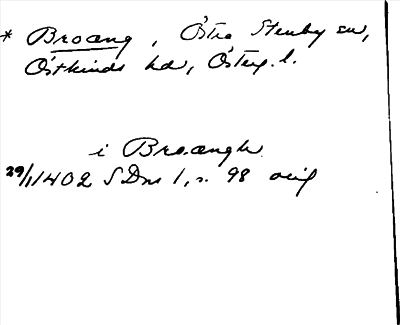 * Broäng, Östra Stenby sn,
Östkinds hd, Österg. l.
i Broængh
29/1 1402 SDns 1, s. 98 orig